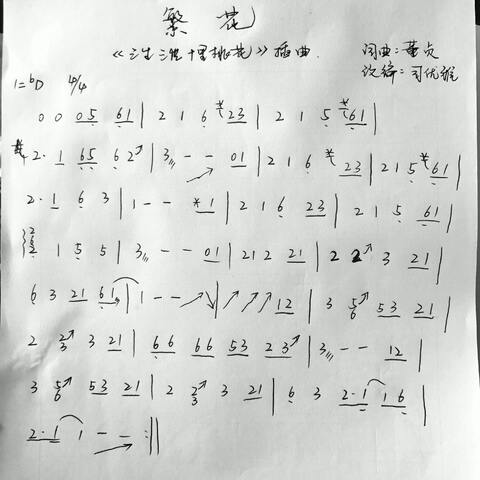 繁花
《三生三世十里桃花》插曲. 词曲:董贞
1=♭D 4/4 改编:司优雅
0 0 05 61 | 2 1 6 23 | 2 1 5 61 |
2· 1 65 6 2 | 3 - - 01 | 2 1 6 23 | 2 1 5 61 |
2· 1 6 3 | 1 - - *1 | 2 1 6 23 | 2 1 5 61 |
1 5 5 | 3 - - 01 | 21 2 21 | 2 2 3 21 |
6 3 21 61 | 1 - - ↗ \ | ↗ ↗ ↗ 12 | 3 5 6 53 21 |
2 2 3 3 21 | 66 66 53 23 | 3 - - 12 |
3 5 6 53 21 | 2 2 3 3 21 | 6 3 2·1 1 6 |
2·1 1 - - :||